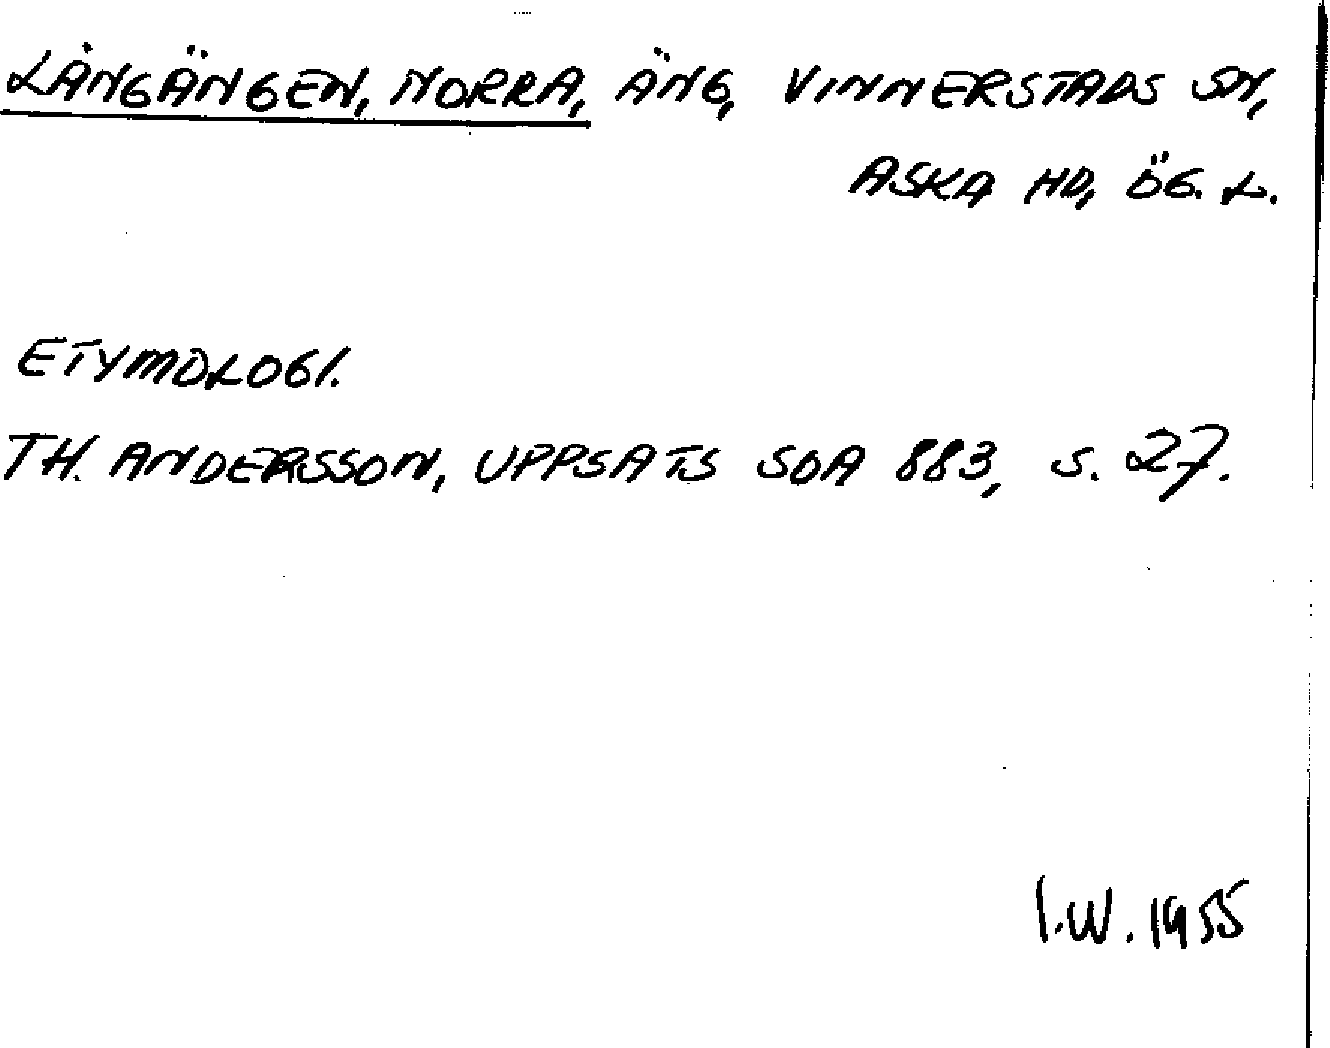 LÅNGÄNGEN, NORRA, ÄNG, VINNERSTADS SN,
ASKA HD, ÖG. L.
ETYMOLOGI.
TH. ANDERSSON, UPPSATS SOA 883, S. 27.
I.W. 1955